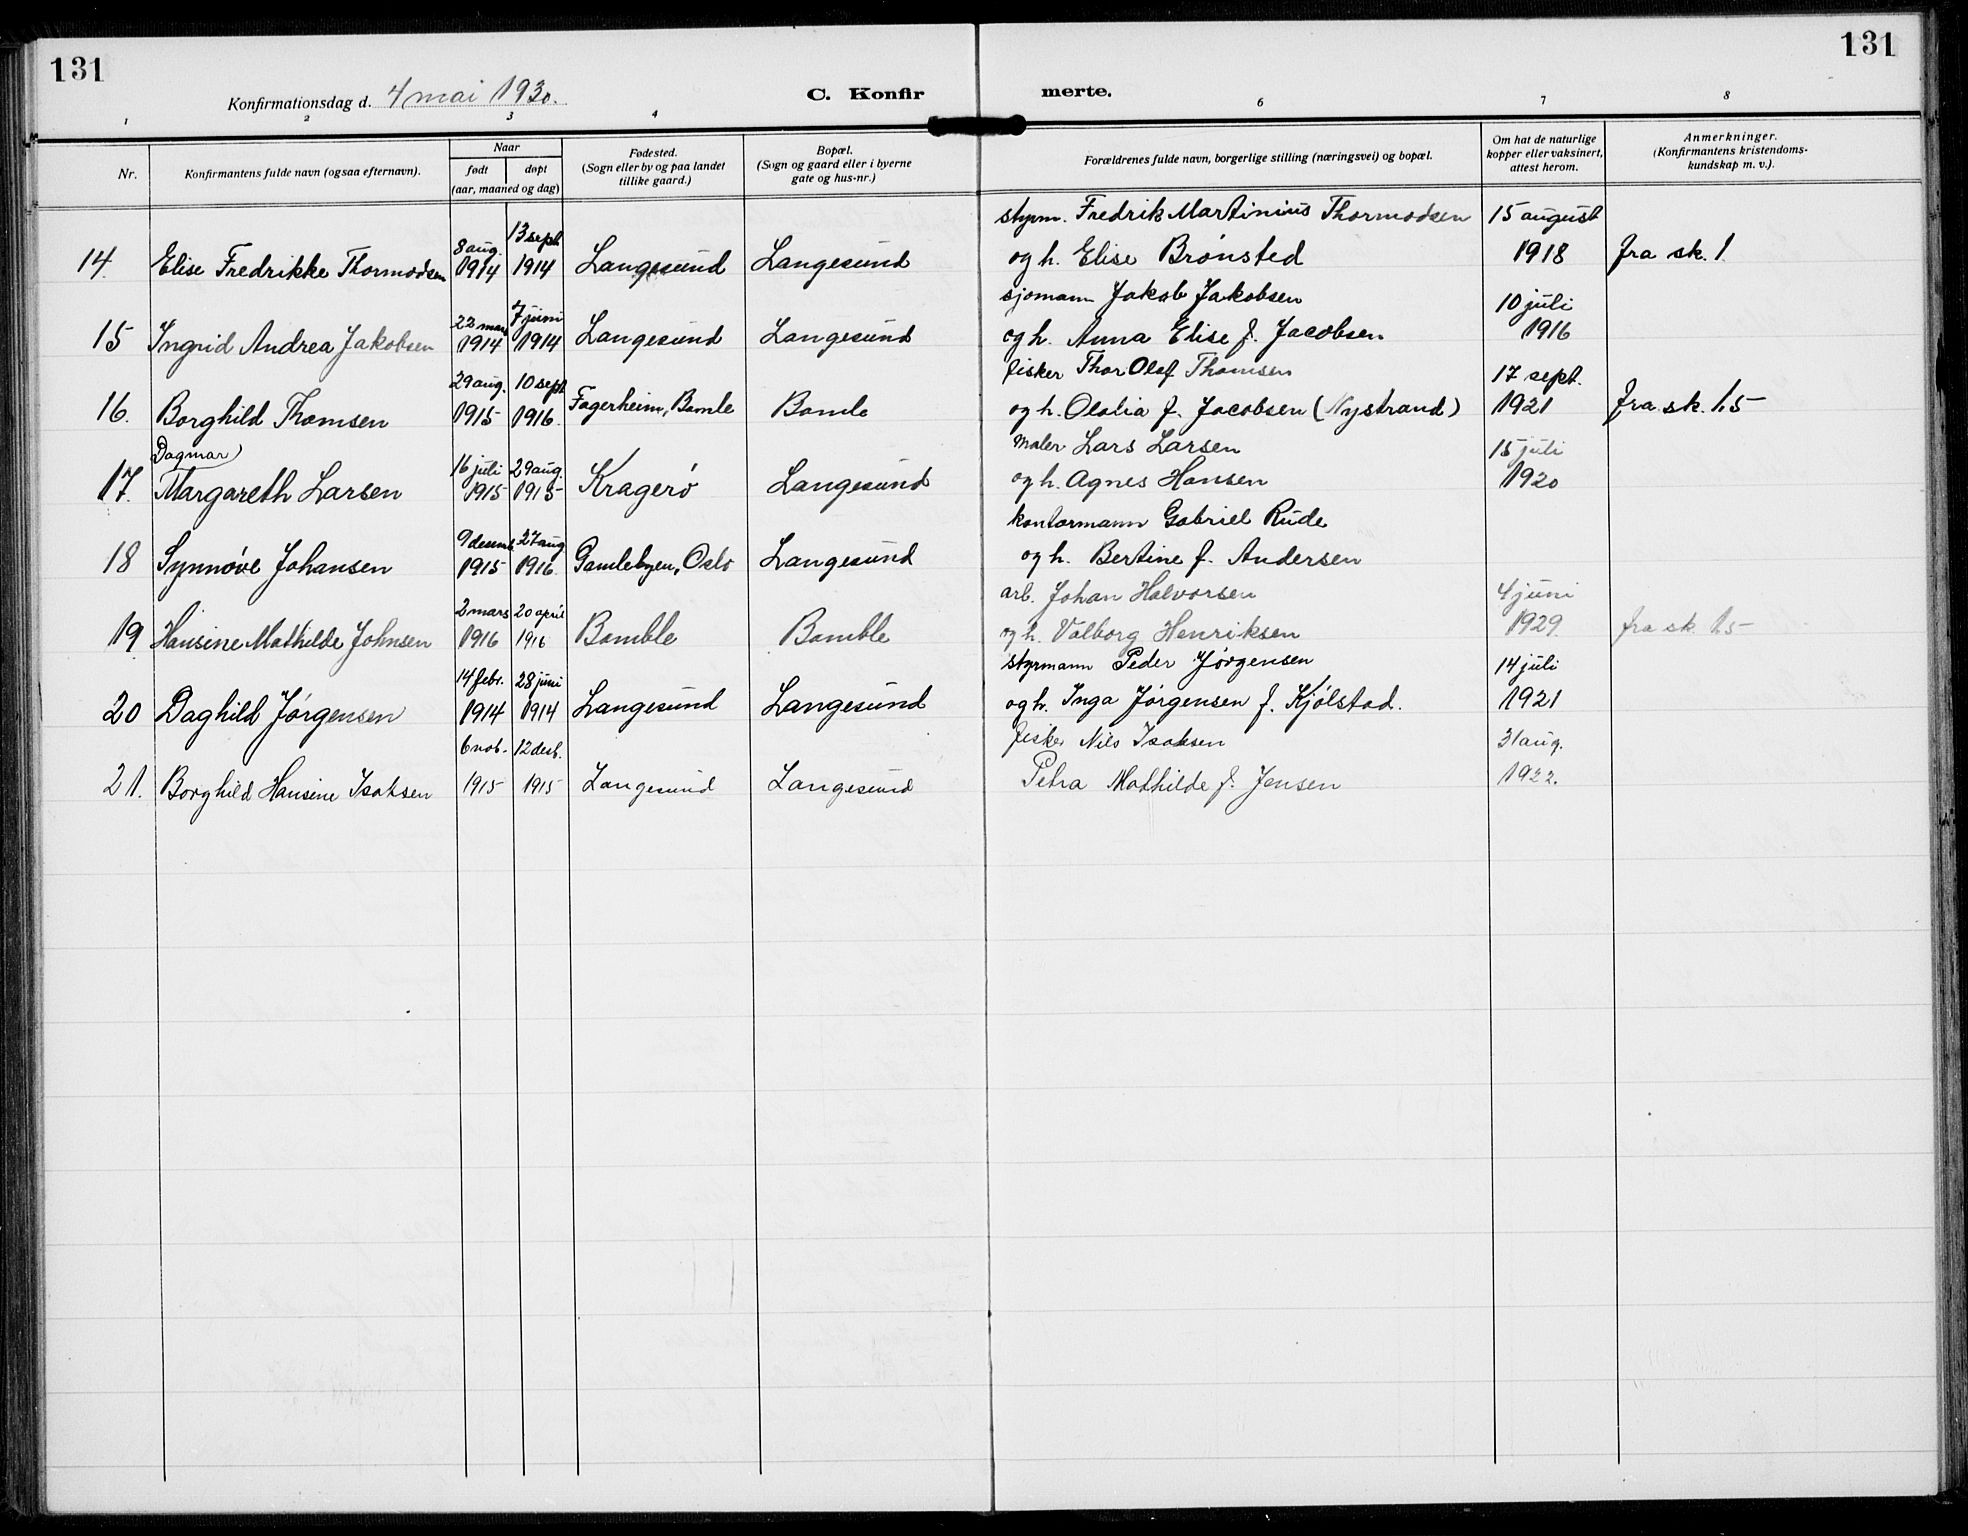 131
131
Konfirmationsdag d. 4 mai 1930.
C. Konfir
merte.
1 2 3 4 6 7 8
Nr.
Konfirmantens fulde navn (ogsaa efternavn).
Naar
født døpt
(aar, maaned og dag)
Fødested.
(Sogn eller by og paa landet
tillike gaard.)
Bopæl.
(Sogn og gaard eller i byerne
gate og hus-nr.)
Forældrenes fulde navn, borgerlige stilling (næringsvei) og bopæl.
Om hat de naturlige
kopper eller vaksinert,
attest herom.
Anmerkninger.
(Konfirmantens kristendoms-
kundskap m. v.).
8 aug. 13 sept. styrm. Fredrik Martinius Thormodsen 15 august
14. Elise Fredrikke Thormodsen 1914 1914 Langesund Langesund og h. Elise Brønsted 1918 fra sk. 1
22 mars 7 juni sjømann Jakob Jakobsen 10 juli
15 Ingrid Andrea Jakobsen 1914 1914 Langesund Langesund og h. Anna Elise f. Jacobsen 1916
29 aug. 10 sept. fisker Thor Olaf Thomsen 17 sept.
16. Borghild Thomsen 1915 1916. Fagerheim, Bamle Bamle og h. Olalia f. Jacobsen (Nystrand) 1921 fra sk. 1.5
Dagmar 16 juli 29 aug. maler Lars Larsen 15 juli
17. Margareth Larsen 1915 1915 Kragerø Langesund og h. Agnes Hansen 1920
9 desemb. 27 aug. kontormann Gabriel Rude
18 Synnøve Johansen 1915 1916. Gamlebyen, Oslo Langesund og h. Bertine f. Andersen
2 mars 20 april arb. Johan Halvorsen 4 juni
19. Hansine Mathilde Johnsen 1916 1916 Bamble Bamble og h. Valborg Henriksen 1929. fra sk. 1.5
14 febr. 28 juni styrmann Peder Jørgensen 14 juli
20 Daghild Jørgensen 1914 1914 Langesund Langesund og h. Inga Jørgensen f. Kjølstad. 1921
6 nov. 12 des. fisker Nils Isaksen 31 aug.
21. Borghild Hansine Isaksen 1915 1915 Langesund Langesund Petra Mathilde f. Jensen 1922.